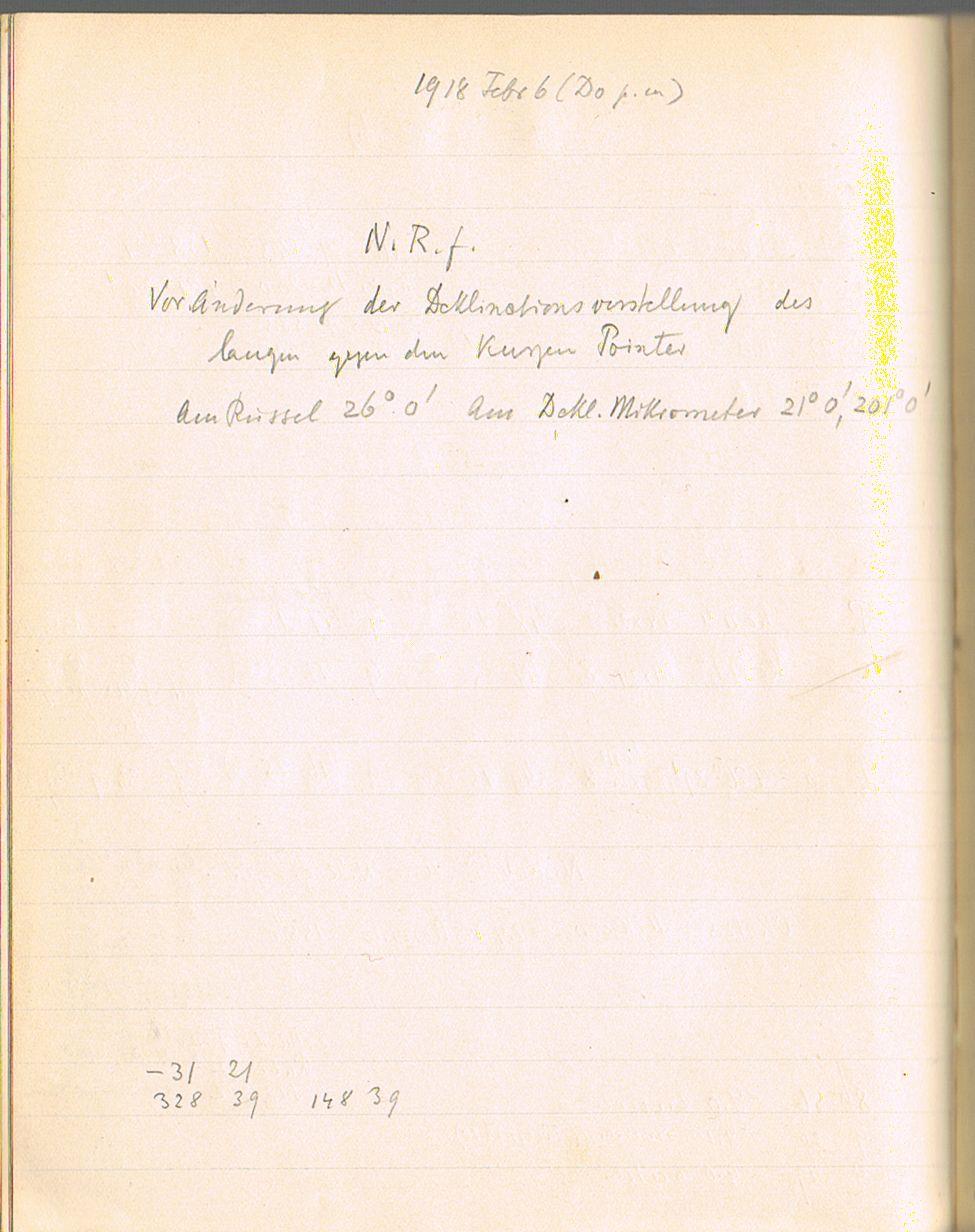 1918 Febr 6 (Do p.m)
N. R. f.
Vor Änderung der Deklinationsverstellung des
langen gegen den kurzen Pointer
Am Rüssel 26° 0′ Am Dekl. Mikrometer 21° 0′, 201° 0′
– 31 21
328 39 148 39